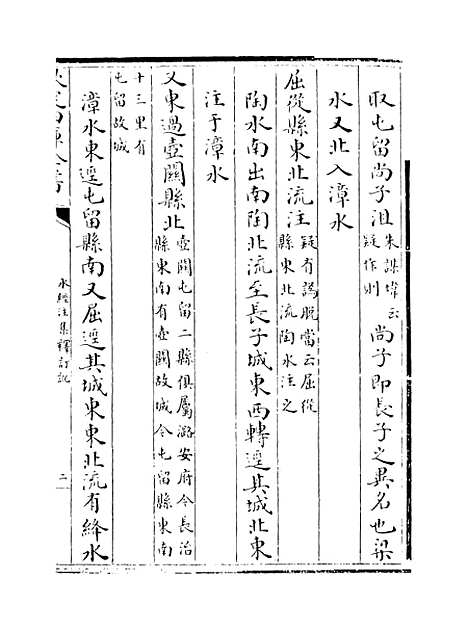 取屯留尚子沮朱謀㙔云疑作則尚子即長子之異名也梁
水又北入漳水
屈從縣東北流注疑有譌脱當云屈從縣東北流陶水注之
陶水南出南陶北流至長子城東西轉逕其城北東
注于漳水
又東過壺關縣北壺關屯留二縣俱屬潞安府今長治縣東南有壺關故城今屯留縣東南
十三里有屯留故城
漳水東逕屯留縣南又屈逕其城東東北流有絳水
欽定四庫全書
水經注集釋訂訛
二